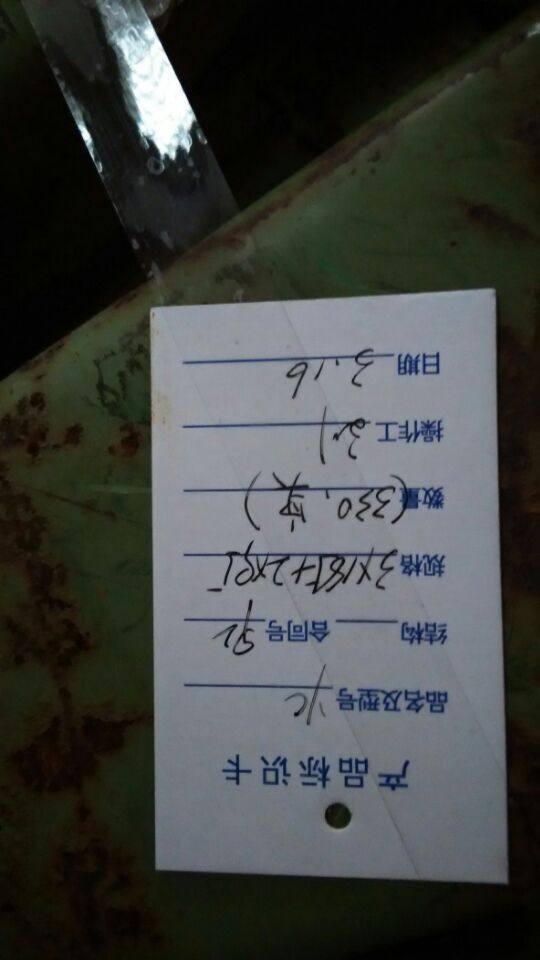 产品标识卡
品名及型号 YC
结构 合同号
规格 3×185+2×95
数量 (330.
操作工
日期 3.16